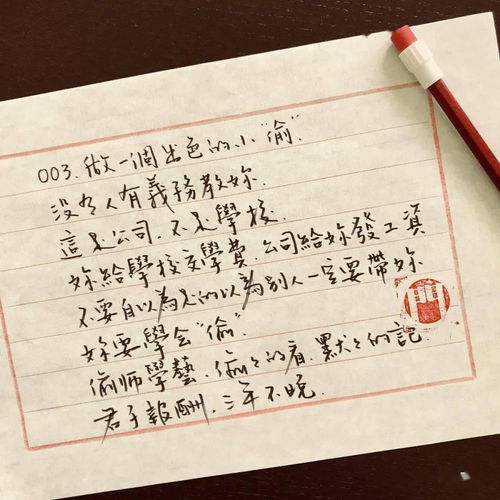 003.做一個出色的小"偷".
沒有人有義務教妳.
這是公司.不是學校.
妳給學校交學費.公司給妳發工資
不要自以為是的以為別人一定要帶妳
妳要學會"偷".
偷師學藝.偷々的看.默々的記.
君子報酬.三年不晚.